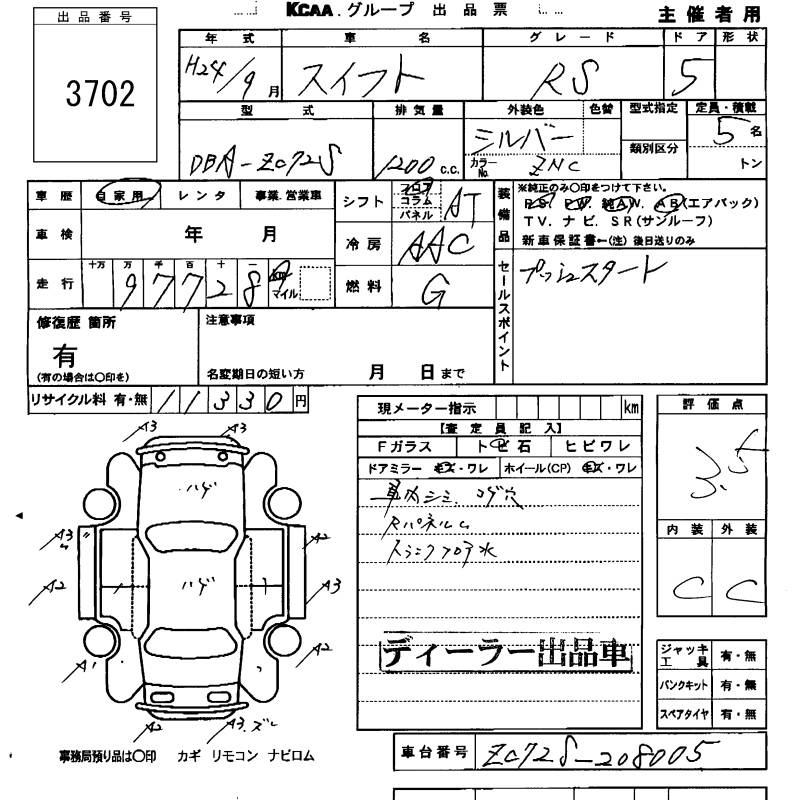 KCAA.グループ 出品票
主催者用
出品番号
3702
年式 車名 グレード ドア 形状
H24/9月 スイフト RS 5
型式 排気量 外装色 色替 型式指定 定員・積載
DBA-ZC72S 1200 c.c. シルバー カラーNo. ZNC 類別区分 5名 トン
車歴 自家用 レンタ 事業.営業車
車検 年 月
走行 十万 万 千 百 十 一
97728 マイル
シフト フロア コラム パネル AT
冷房 AAC
燃料 G
装備品 ※純正のみ○印をつけて下さい。
PS. PW. 純AW. AB(エアバック)
TV. ナビ. SR(サンルーフ)
新車保証書←(注) 後日送りのみ
セールスポイント プッシュスタート
修復歴 箇所
有
(有の場合は○印を)
注意事項
名変期日の短い方 月 日まで
リサイクル料 有・無 11330円
現メーター指示 km
【査定員記入】
Fガラス トビ石 ヒビワレ
ドアミラー キズ・ワレ ホイール(CP) キズ・ワレ
車内シミ. コゲ穴
ディーラー出品車
評価点
3.5
内装 外装
C C
ジャッキ 工具 有・無
パンクキット 有・無
スペアタイヤ 有・無
A3 A3
ハゲ
A3 A2
A2 ハゲ A3
A1 A2
A2 A3.ズレ
事務局預り品は○印 カギ リモコン ナビロム
車台番号 ZC72S-208005